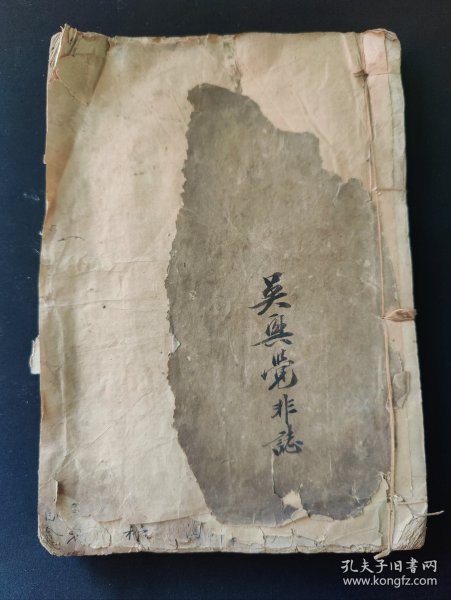 吴興覺非誌
孔夫子旧书网
www.kongfz.com